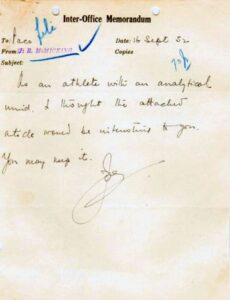 Inter-Office Memorandum
file
To: Paco Date: 16 Sept 52
From: J. R. McMICKING Copies
Subject:
As an athlete with an analytical
mind, I thought the attached
article would be interesting to you.
You may keep it.
Joe